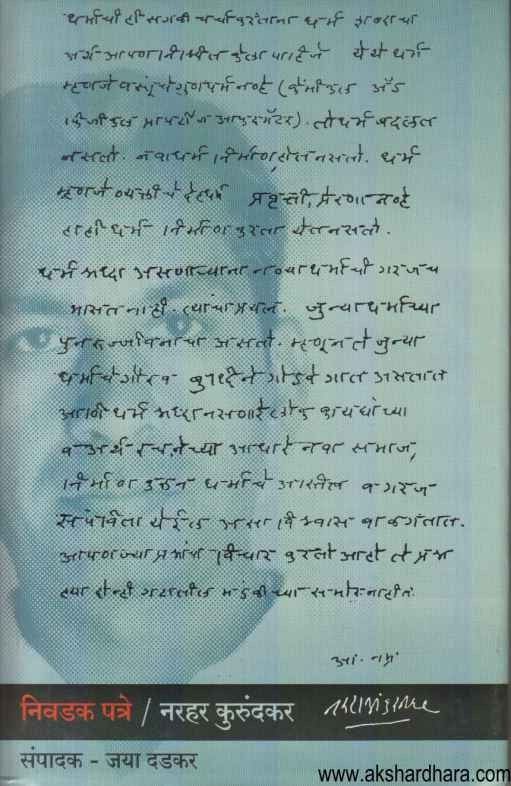 धर्माची ही सगळी चर्चा करताना धर्म शब्दाचा
अर्थ आपण निश्चित केला पाहिजे येथे धर्म
म्हणजे वस्तूंचे गुणधर्म नव्हे (केमीकल अँड
फिजीकल प्रापर्टीज आफ मॅटर). तो धर्म बदलत
नसतो. नवा धर्म निर्माण होत नसतो. धर्म
म्हणजे व्यक्तीचे देहधर्म प्रवृत्ती, प्रेरणा नव्हे
हाही धर्म निर्माण करता येत नसतो.
धर्म श्रध्दा असणाऱ्यांना नव्या धर्माची गरजच
भासत नाही. त्यांचा प्रयत्न. जुन्या धर्माच्या
पुनरुज्जीवनाचा असतो. म्हणून ते जुन्या
धर्माचे गौरव बुध्दीने गोडवे गात असतात
आणी धर्म श्रध्दा नसणारे लोक कायद्यांच्या
व अर्थ रचनेच्या आधारे नवा समाज,
निर्माण करून धर्माचे अस्तित्व व गरज
संपविता येईल असा विश्वास बाळगतात.
आपण ज्या प्रश्नांचा विचार करतो आहो ते प्रश्न
ह्या दोन्ही गटातील मंडळीच्या समोर नाहीत.
आ. नम्र
निवडक पत्रे / नरहर कुरुंदकर
संपादक - जया दडकर
www.akshardhara.com